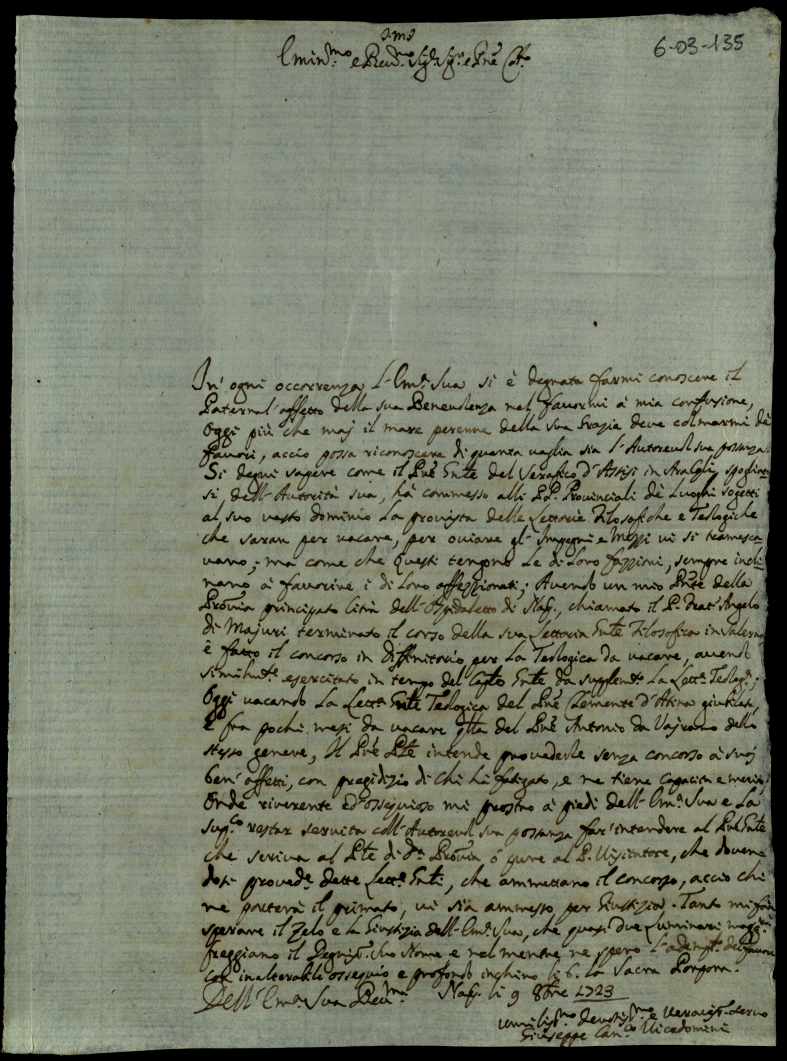 6-03-135
Emin.mo e Rev.mo Sig.r Sig.re e Pnē
In' ogni occorrenza l'Em.a Sua si è degnata farmi conoscere il
Paternal' affetto della sua Benevolenza nel favormi à mia confusione,
Oggi più che maj il mare perenne della sua Grazia deve colmarmi de
favori, acciò possa riconoscere di quanta vaglia sia l'Autorevol sua possanza.
Si degni sapere come il Prē Gnte del Serafico d'Assisi in spoglian-
si, dell'Autorità sua, hà commesso alli P.P. Provinciali dè Luoghi sogetti
al suo vasto dominio La provista delle Lettorie Filosofiche e Teologiche
che saran per vacare, per oviare gl' Impegni e Mezzi vi si
vano; ma come che questi tengono Le di Loro fazzioni, sempre incli-
nano à favorire i di Loro affezzionati; Avendo un mio Pnte della
Provīa principato Citrà dell'Ospidaletto di Nap., chiamato il P. Frat' Angelo
di Majuri terminato il corso della sua Lettoria Gnte Filosofica in Salerno
è fatto il concorso in Diffinitorio per La Teologica da vacare, avendo
similm.te esercitato in tempo del Gnte da La Lett.a Teolog.;
Oggi vacando La Lett.a Gnte Teologica del Prē Clemente d'Atina giubilato,
E fra pochi mesi da vacare qlla del Prē Antonio da Vajrano dello
stesso genere, Il Prē Plē intende provederle senza concorso à suoj
ben' affetti, con pregidizio di chi hà fatigato, e ne tiene Capacità e merito;
Onde riverente ed' ossequioso mi prostro à piedi dell'Em.a Sua e La
sup.co restar servita coll'Autorevol sua possanza far' intendere al Prē Gnte
che scriva al Plē di d.a Provīa ò pure al P. Visitatore, che doven-
dosi proved.e dette Lett.e Gnti, che ammettano il concorso, acciò chi
ne porterà il primato, vi sia ammesso per Giustizia. Tanto mi fà
sperare il Zelo e la Giustizia dell'Em.a Sua, che quasi due Luminari magg.ri
freggiano il Degniss.o Suo Nome e nel mentre ne spero l'adempt.o de favori
con inalterabile ossequio e profondo inchino li b. la Sacra Porpora.
Dell'Em.a Sua Rev.ma Nap. li 9 8bre 1723
Umiliss.mo Devotiss.mo e Veraciss. Servo
Giuseppe Can.co Vicedomini